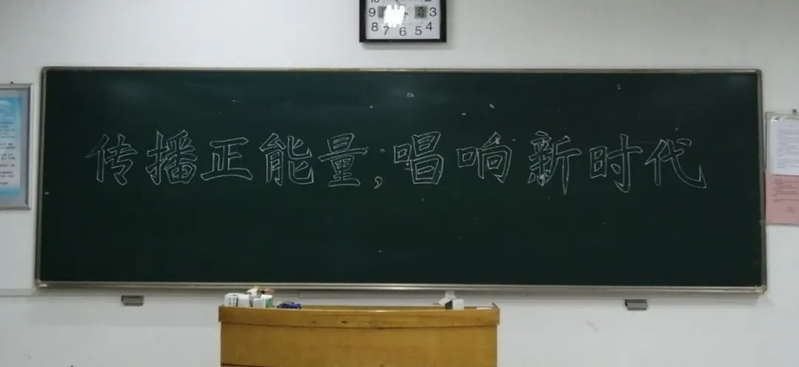 9 3
8 7 6 5 4
传播正能量,唱响新时代